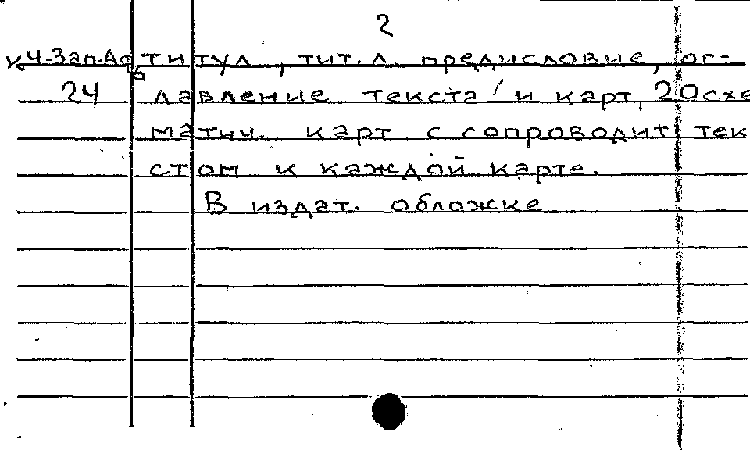 2
титул, тит. л. предисловие, ог-
24 лавление текста и карт, 20 схе
матич. карт с сопроводит. тек
стом к каждой карте.
В издат. обложке